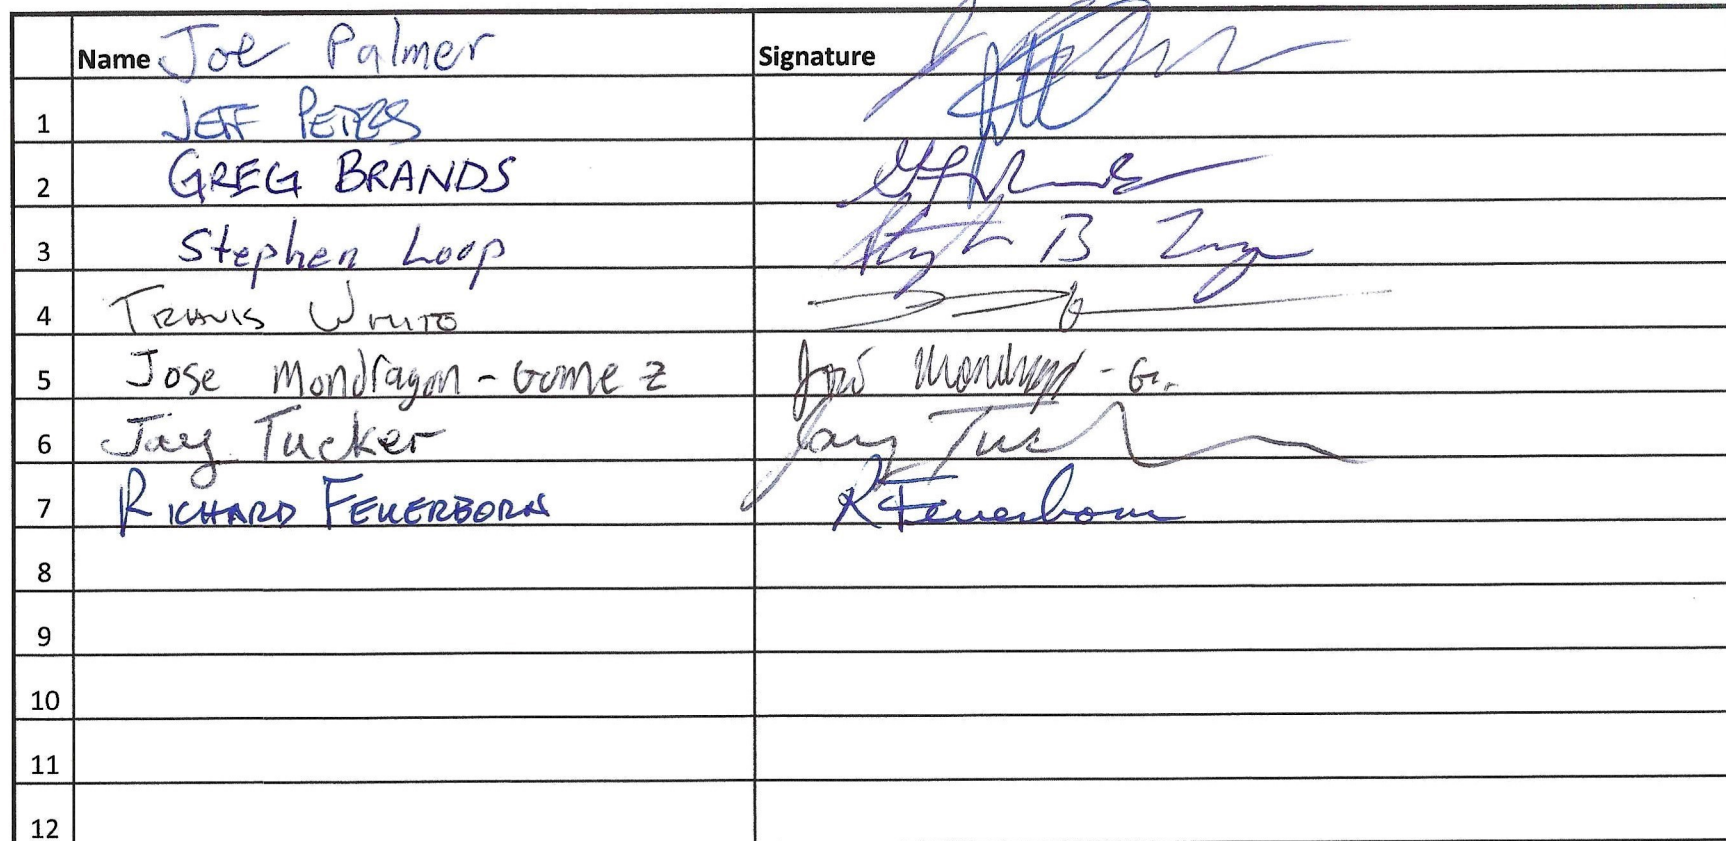 Name Joe Palmer Signature
1 JEFF PETERS
2 GREG BRANDS
3 Stephen Loop Stephen B Loop
4 TRAVIS WHITE
5 Jose Mondragon-Gomez José Mondragon-G.
6 Jay Tucker Jay Tucker
7 RICHARD FEUERBORN R Feuerborn
8
9
10
11
12